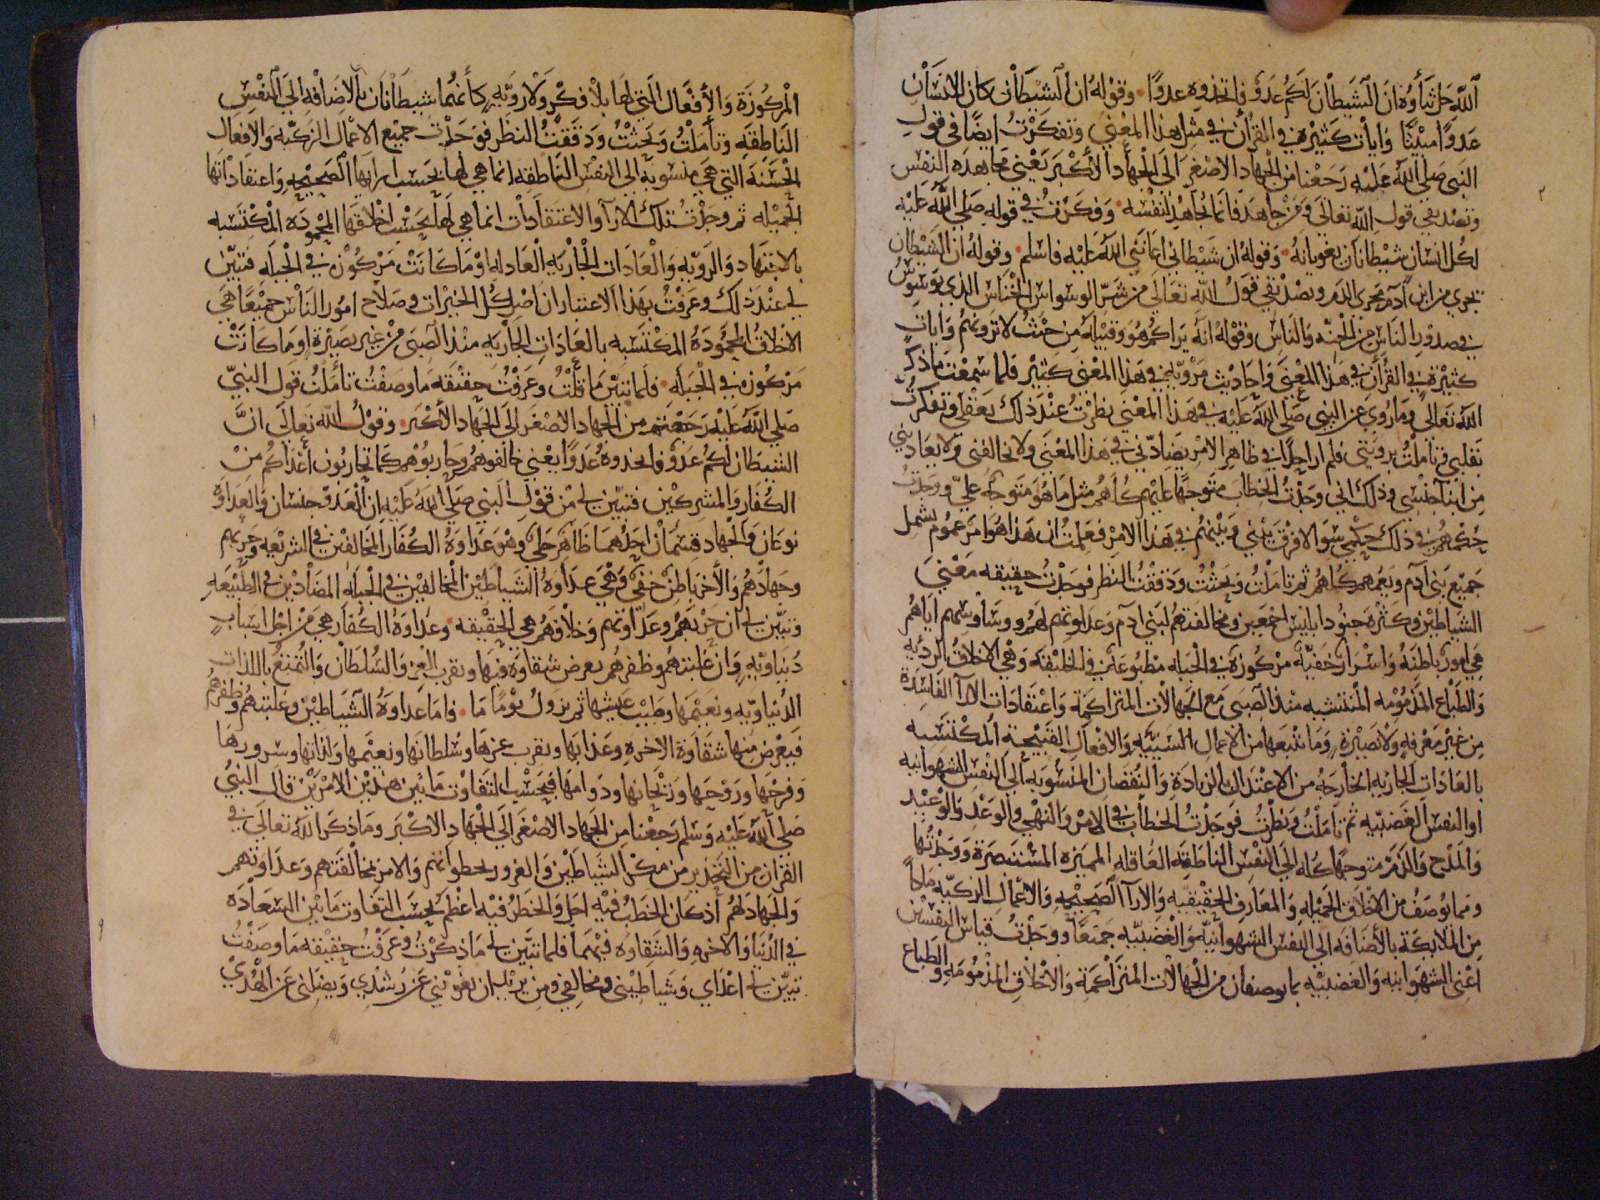 الله جل ثناؤه ان الشيطان لكم عدو فاتخذوه عدوا وقوله ان الشيطان كان للانسان
عدوا مبينا وايات كثيرة في القرآن في مثل هذا المعنى وتفكرت ايضا في قول
النبي صلى الله عليه رجعنا من الجهاد الاصغر الى الجهاد الاكبر يعني مجاهدة النفس
وتصديقي قول الله تعالى ومن جاهد فانما يجاهد لنفسه وفكرت في قوله صلى الله عليه
لكل انسان شيطانان يغويانه وقوله ان شيطاني اعانني الله عليه فاسلم وقوله ان الشيطان
يجري من ابن آدم مجرى الدم وتصديقي قول الله تعالى من شر الوسواس الخناس الذي يوسوس
في صدور الناس من الجنة والناس وقوله انه يراكم هو وقبيله من حيث لا ترونهم وايات
كثيرة في القرآن في هذا المعنى واحاديث مروية في هذا المعنى كثير فلما سمعت ما ذكر
الله تعالى وما روي عن النبي صلى الله عليه في هذا المعنى نظرت عند ذلك بعقلي وتفكرت
بقلبي وتأملت برويتي فلم ار احدا في ظاهر الامر يضادني في هذا المعنى ولا يخالفني ولا يعاديني
من ابناء جنسي وذلك اني وجدت الخطاب متوجها عليهم كلهم مثل ما هو متوجه علي ووجدت
حكمهم في ذلك حكمي سواء لا فرق بيني وبينهم في هذا الامر فعلمت ان هذا هو امر عموم يشمل
جميع بني آدم ويعمهم كلهم ثم تأملت وبحثت ودققت النظر فوجدت حقيقة معنى
الشياطين وكثرة جنود ابليس اجمعين ومخالفتهم لبني آدم وعداوتهم لهم ووساوسهم اياهم
هي امور باطنة واسرار خفية مركوزة في الجبلة مطبوعة في الخليقة وهي الاخلاق الردية
والطباع المذمومة المنتشبه منذ الصبى مع الجهالات المتراكمة واعتقادات الآراء الفاسدة
من غير معرفة ولا بصيرة وما يتبعها من الاعمال السيئة والافعال القبيحة المكتسبة
بالعادات الجارية الخارجة من الاعتدال بالزيادة والنقصان المنسوبة الى النفس الشهوانية
او النفس الغضبية ثم تأملت ونظرت فوجدت الخطاب في الامر والنهي والوعد والوعيد
والمدح والذم متوجها كله الى النفس الناطقة العاقلة المميزة المستبصرة ووجدتها
ومما توصف من الاخلاق الجميلة والمعارف الحقيقية والآراء الصحيحة والاعمال الزكية ملكا
من الملائكة بالاضافة الى النفس الشهوانية والغضبية جميعا ووجدت قياس النفسين
اعني الشهوانية والغضبية بما يوصفان من الجهالات المتراكمة والاخلاق المذمومة والطباع
المركوزة والأفعال التي لها بلا فكر ولا روية كأنهما شيطانان بالاضافة الى النفس
الناطقة وتأملت وبحثت ودققت النظر فوجدت جميع الاعمال الزكية والافعال
الحسنة التي هي منسوبة الى النفس الناطقة انما هي لها بحسب ارايها الصحيحة واعتقاداتها
الجميلة ثم وجدت تلك الآراء والاعتقادات انما هي لها بحسب اخلاقها المحمودة المكتسبة
بالاجتهاد والروية والعادات الجارية العادلة او ما كانت مركوزة في الجبلة فتبين
لي عند ذلك وعرفت بهذا الاعتبار ان اصل كل الخيرات وصلاح امور الناس جميعا هي
الاخلاق المحمودة المكتسبة بالعادات الجارية منذ الصبى من غير بصيرة او ما كانت
مركوزة في الجبلة فلما تبين ما قلت وعرفت حقيقة ما وصفت تأملت قول النبي
صلى الله عليه رجعتم من الجهاد الاصغر الى الجهاد الاكبر وقول الله تعالى ان
الشيطان لكم عدو فاتخذوه عدوا يعني خالفوهم وحاربوهم كما تحاربون اعداكم من
الكفار والمشركين فتبين لي من قول النبي صلى الله عليه ان العدو جنسان والعداوة
نوعان والجهاد قسمان احدهما ظاهر جلي وهو عداوة الكفار المخالفين في الشريعة وحربهم
وجهادهم والآخر باطن خفي وهي عداوة الشياطين المخالفين في الجبلة المضادين في الطبيعة
وتبين لي ان حربهم وعداوتهم وخلافهم هي الحقيقة وعداوة الكفار هي من اجل اسباب
دنياوية وان غلبتهم وظفرهم يعرض شقاوة فيها ويقرب العز والسلطان والتمتع باللذات
الدنياوية ونعيمها وطيب عيشها ثم يزول يوما ما واما عداوة الشياطين وغلبتهم وظفرهم
فيعرض منها شقاوة الاخرة وعذابها ويقرب عزها وسلطانها ونعيمها ولذاتها وسرورها
وفرحها وروحها وريحانها ودوامها فبحسب التفاوت ما بين هذين الامرين قال النبي
صلى الله عليه وسلم رجعنا من الجهاد الاصغر الى الجهاد الاكبر وما ذكر الله تعالى في
القرآن من التحذير من مكر الشياطين والغرور بخطواتهم والامر بمخالفتهم وعداوتهم
والجهاد لهم اذ كان الخطب فيه اجل والخطر فيه اعظم بحسب التفاوت ما بين السعادة
في الدنيا والآخرة والشقاوة فيهما فلما تبين لي ما ذكرت وعرفت حقيقة ما وصفت
تبين لي اعداي وشياطيني ومخالفي ومن يريد ان يغويني عن رشدي ويضلني عن الهدى